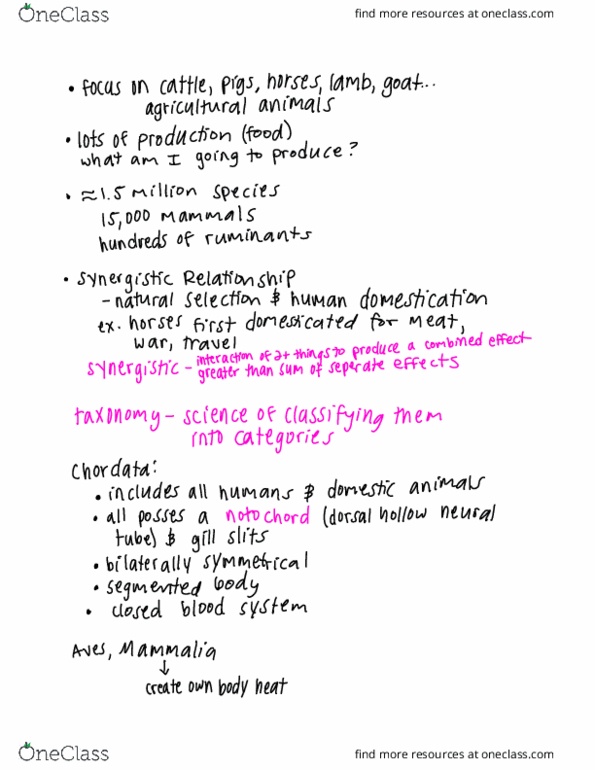 OneClass
find more resources at oneclass.com
• focus on cattle, pigs, horses, lamb, goat...
agricultural animals
• lots of production (food)
what am I going to produce?
• ≈1.5 million species
15,000 mammals
hundreds of ruminants
• synergistic Relationship
- natural selection & human domestication
ex. horses first domesticated for meat,
war, travel
synergistic - interaction of 2+ things to produce a combined effect
greater than sum of seperate effects
taxonomy - science of classifying them
into categories
Chordata:
• includes all humans & domestic animals
• all posses a notochord (dorsal hollow neural
tube) & gill slits
• bilaterally symmetrical
• segmented body
• closed blood system
Aves, Mammalia
↓
create own body heat
OneClass
find more resources at oneclass.com